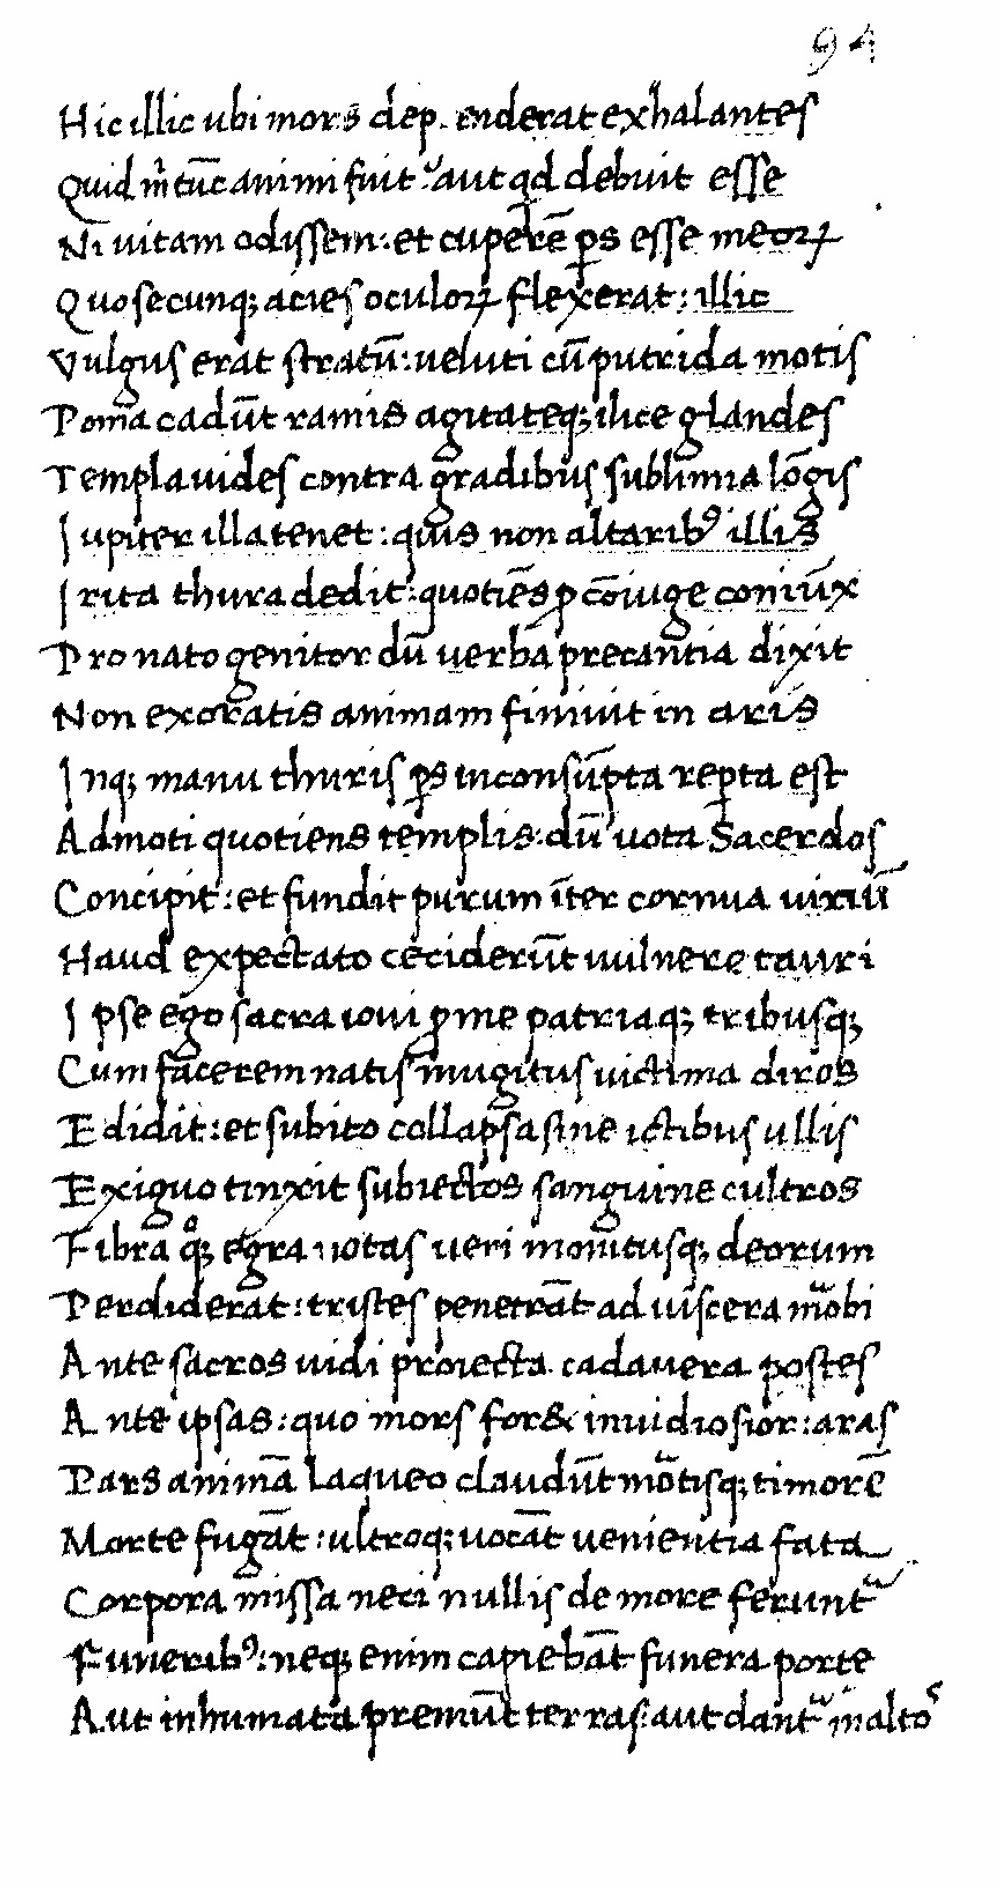 94
Hic illic ubi mors dep. enderat exhalantes
Quid m̓ tūc animi fuit? aut qd debuit esse
Ni uitam odissem: et cuperē ꝑs esse meoꝝ
Quo se cunqꝫ acies oculoꝝ flexerat: illic
Vulgus erat stratū: ueluti cū putrida motis
Poma cadūt ramis agitateqꝫ ilice glandes
Templa uides contra gradibus sublimia lōgis
Iupiter illa tenet: quis non altaribꝰ illis
Irita thura dedit: quotiēs ꝓ cōiuge coniūx
Pro nato genitor dū uerba precantia dixit
Non exoratis animam finiuit in aris
Inqꝫ manu thuris ꝑs inconsūpta reꝑta est
Admoti quotiens templis: dū uota Sacerdos
Concipit: et fundit purum īter cornua uirūū
Haud expectato ceciderūt uulnere tauri
Ipse ego sacra ioui ꝓ me patriaqꝫ tribusqꝫ
Cum facerem natis mugitus uictima diros
Edidit: et subito collapsa sine ictibus ullis
Exiguo tinxit subiectos sanguine cultros
Fibra qͦꝫ egra notas ueri monitusqꝫ deorum
Perdiderat: tristes penetrāt ad uiscera mōbi
Ante sacros uidi proiecta cadauera postes
Ante ipsas: quo mors for& inuidiosior: aras
Pars animā laqueo claudūt mōtisqꝫ timorē
Morte fugāt: ultroqꝫ uocāt uenientia fata
Corpora missa neci nullis de more feruntᷓ
Funeribꝰ: neqꝫ enim capiebāt funera porte
Aut inhumata premūt terras: aut dantᷓ in alto^s